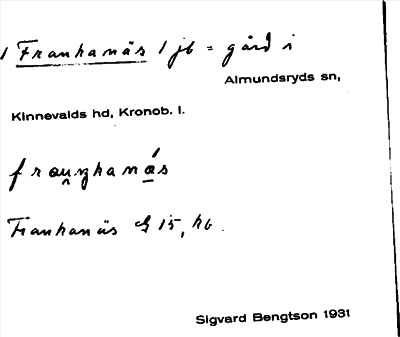 1 Franhanäs 1 jb = gård i
Almundsryds sn,
Kinnevalds hd, Kronob. l.
Franhanäs G 15, hb.
Sigvard Bengtson 1931